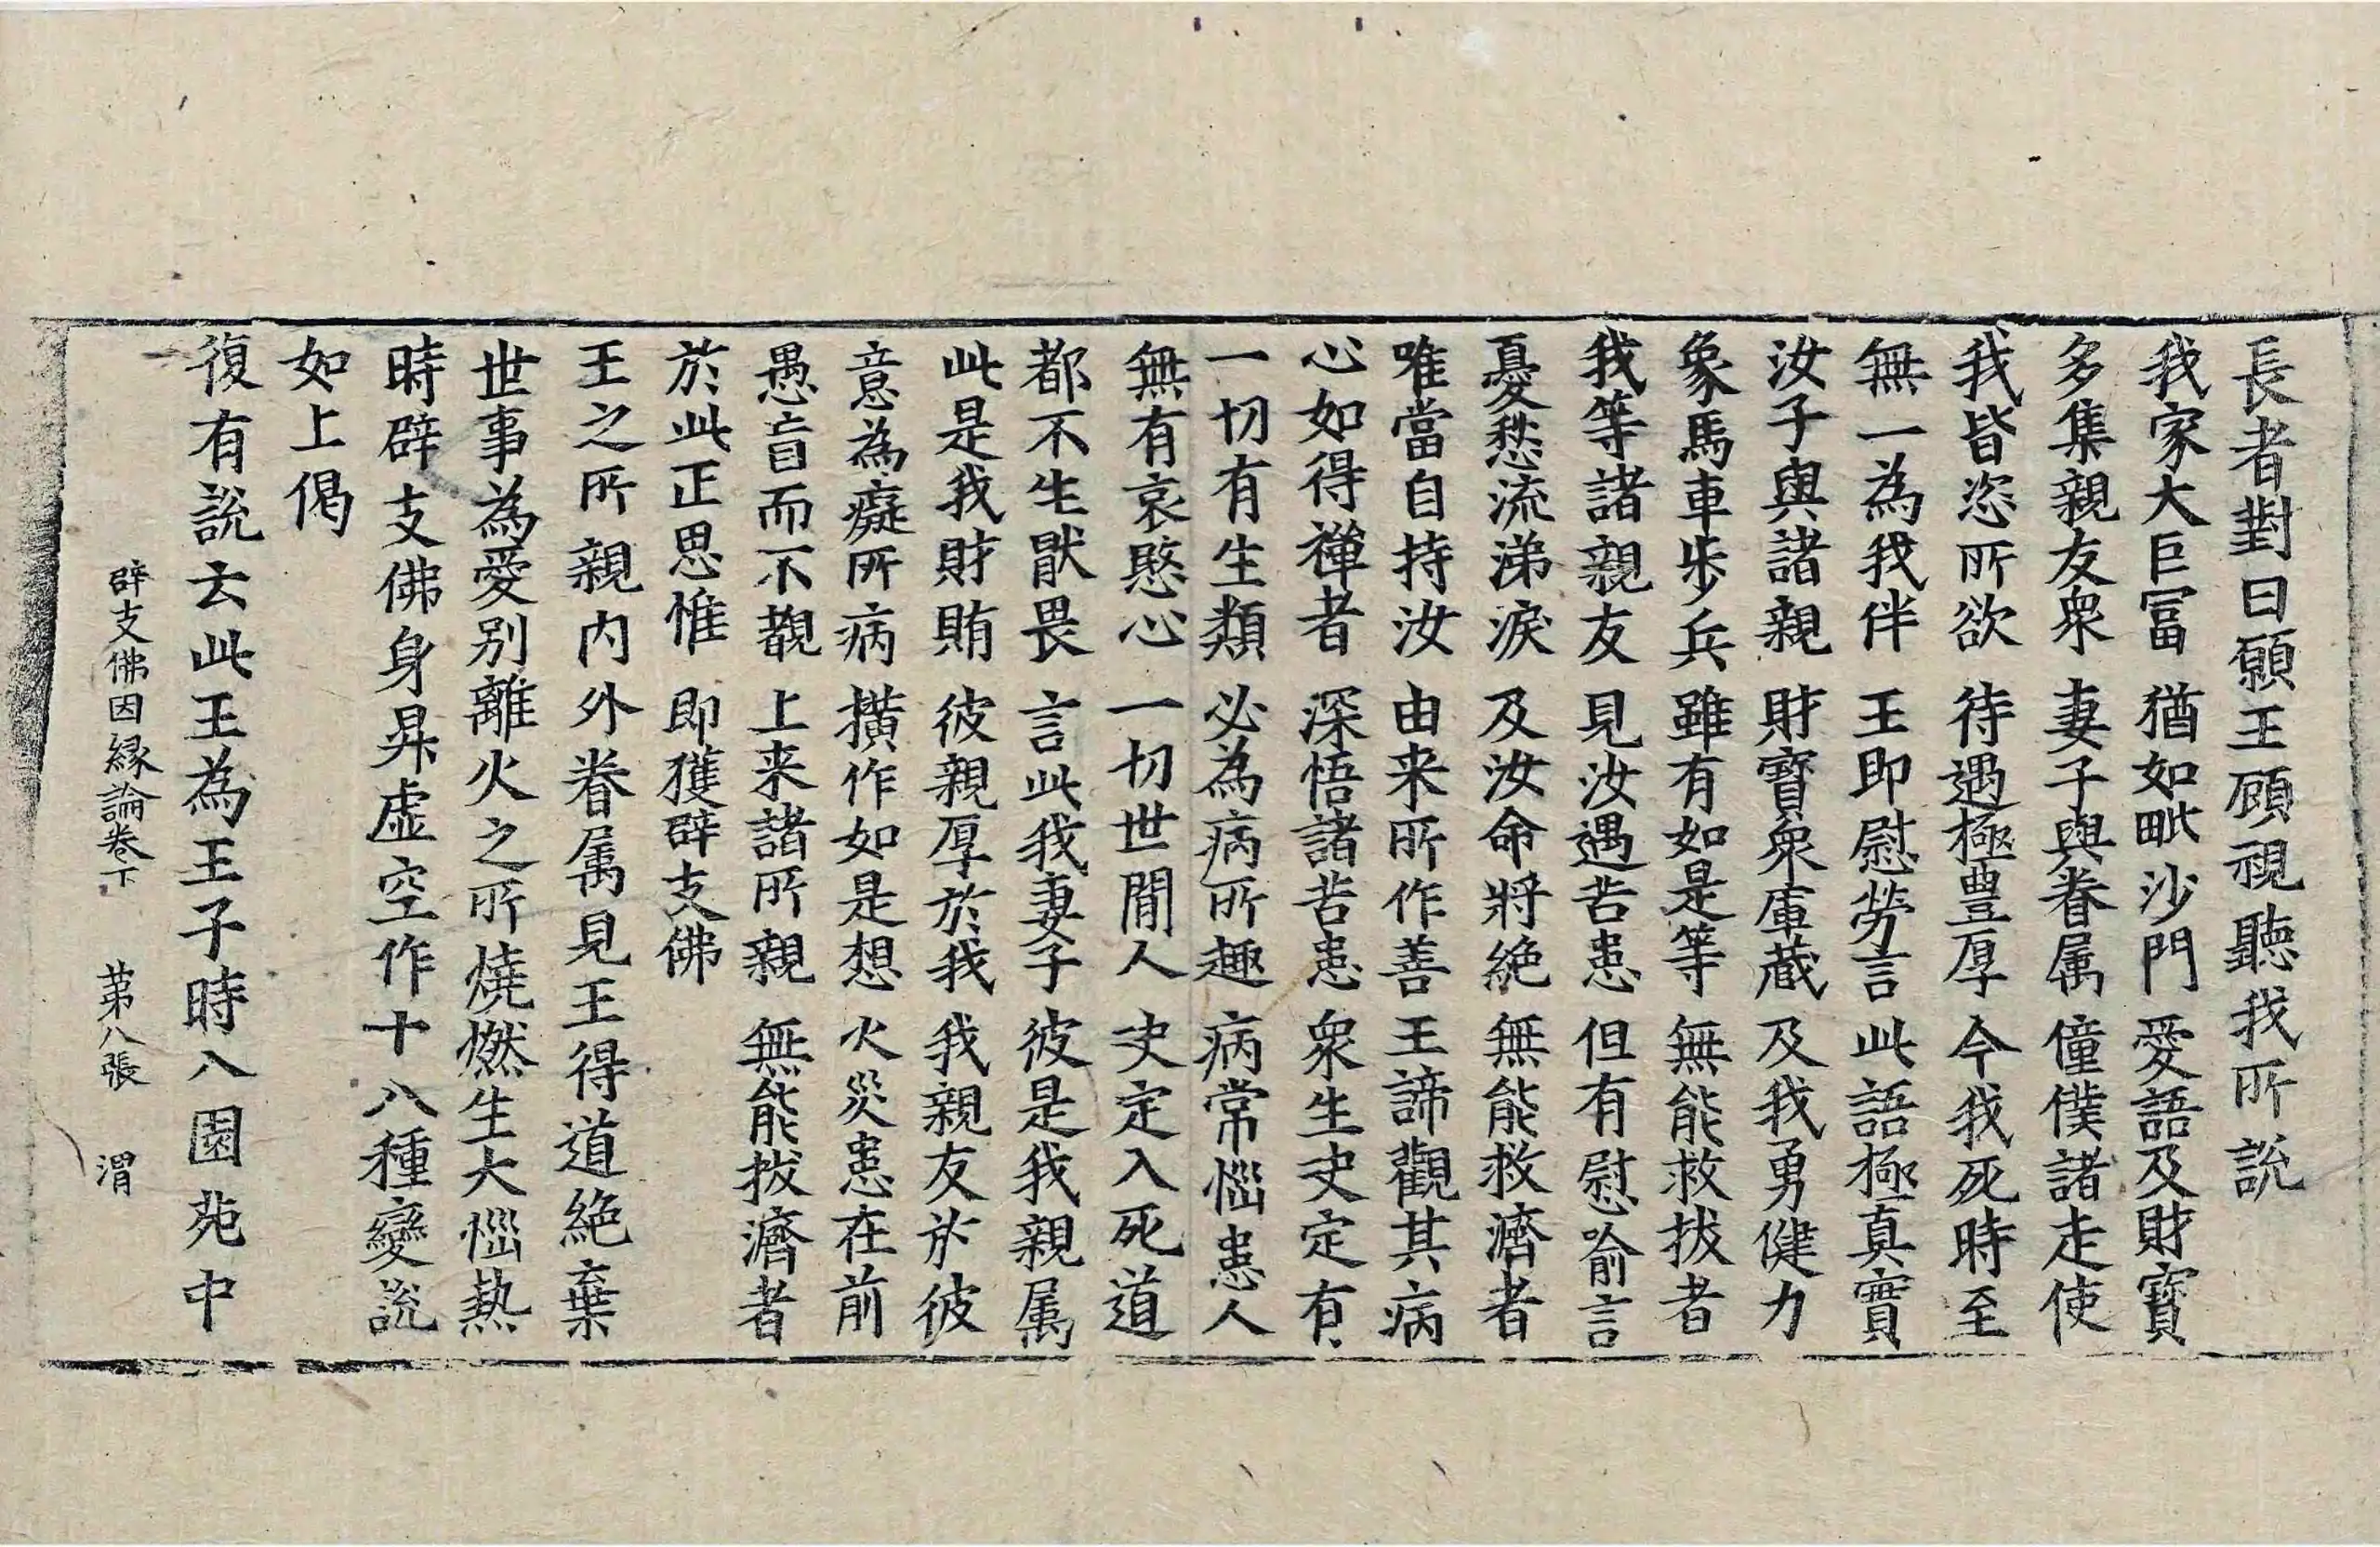 長者對曰願王顧視聽我所說
我家大巨冨 猶如毗沙門 愛語及財寳
多集親友衆 妻子與眷属 僮僕諸走使
我皆恣所欲 待遇極豊厚 今我死時至
無一為我伴 王即慰勞言 此語極真實
汝子與諸親 財寳衆庫蔵 及我勇健力
象馬車步兵 雖有如是等 無能救拔者
我等諸親友 見汝遇苦患 但有慰喻言
憂愁流涕淚 及汝命將絶 無能救濟者
唯當自持汝 由来所作善 王諦觀其病
心如得禪者 深悟諸苦患 衆生史定有
一切有生類 必為病所趣 病常惱患人
無有哀愍心 一切世間人 史定入死道
都不生猒畏 言此我妻子 彼是我親属
此是我財賄 彼親厚於我 我親友於彼
意為癡所病 撗作如是想 火災患在前
愚盲而不觀 上来諸所親 無能拔濟者
於此正思惟 即獲辟支佛
王之所親内外眷属見王得道絶棄
世事為愛别離火之所燒燃生大惱熱
時辟支佛身昇虚空作十八種變說
如上偈
復有說云此王為王子時入園苑中
辟支佛因縁論卷下 苐八張 渭